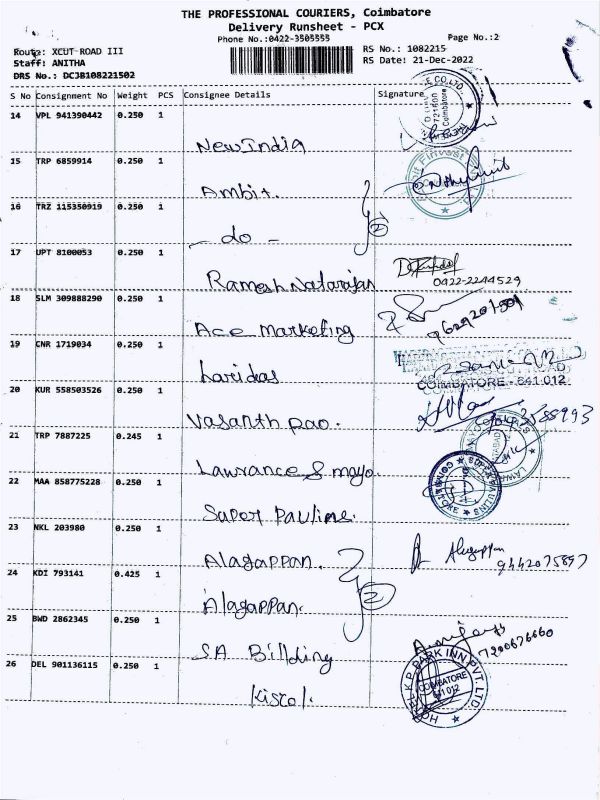 THE PROFESSIONAL COURIERS, Coimbatore
Delivery Runsheet - PCX
Phone No.:0422-3505555 Page No.:2
Route: XCUT ROAD III RS No.: 1082215
Staff: ANITHA RS Date: 21-Dec-2022
DRS No.: DCJB108221502
S No Consignment No Weight PCS Consignee Details Signature
14 VPL 941390442 0.250 1
New India
15 TRP 6859914 0.250 1
Ambit.
16 TRZ 115350919 0.250 1
- do - 2
17 UPT 8100053 0.250 1
Ramesh Natarajan 0422-2244529
18 SLM 309888290 0.250 1
Ace marketing 9629201501
19 CNR 1719034 0.250 1
Laridas COIMBATORE - 641 012
20 KUR 558503526 0.250 1
Vasanth Rao.
21 TRP 7887225 0.245 1
Lawrance & mayo.
22 MAA 858775228 0.250 1
Super Pauline.
23 NKL 203980 0.250 1
Alagappan. Alagappan 9442075897
24 KDI 793141 0.425 1
Alagappan. 2
25 BWD 2862345 0.250 1
SA Billding 7200676660
26 DEL 901136115 0.250 1
Kiscol. HOTEL K.P. PARK INN PVT. LTD. COIMBATORE 641 012